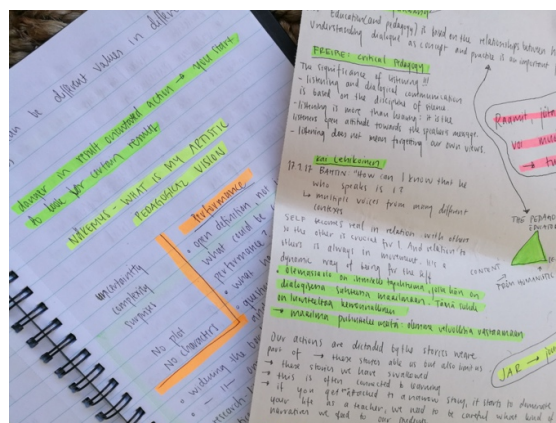 can be different values in different
danger in result orientated action → you start
to look for certain results
NÄKEMYS - WHAT IS MY ARTISTIC
PEDAGOGICAL VISION
Performance
open definition
what could be
performance?
uncertainty
complexity
surprises
No plot
No characters
widening the
Education (and pedagogy) is based on the relationships between
Understanding dialogue as concept and possible is an important
FREIRE: critical Pedagogy
The significance of listening !!!
- listening and dialogical communication
is based on the discipline of silence
- listening is more than hearing: it is the
listeners open attitude towards the speakers message.
- listening does not mean forgetting our own views.
17.9.17 BAHTIN: "How can I know that he
who speaks is I?
↳ multiple voices from many different
contexts
SELF becomes real in relation with others
so the other is crucial for I. And relation to
others is always in movement. It's a
dynamic way of being for the self
• olemassaolo on ihmiselle tapahtuma, jossa hän on
dialogisessa suhteessa maailmaan. Tämä suhde
on luonteeltaan keskusteleva
→ maailma puhuttelee meitä: olemme velvollisia vastaamaan
THE PEDAGO
CONTENT
FROM HUMANISTIC
Our actions are decided by the stories we are
part of → these stories able us but also limit us
→ these stories we have swallowed
→ this is often connected to learning
→ if you get attached to a narrow story, it starts to dominate
your life as a teacher, we need to be careful what kind of
narratives we feed to our students
JAR →